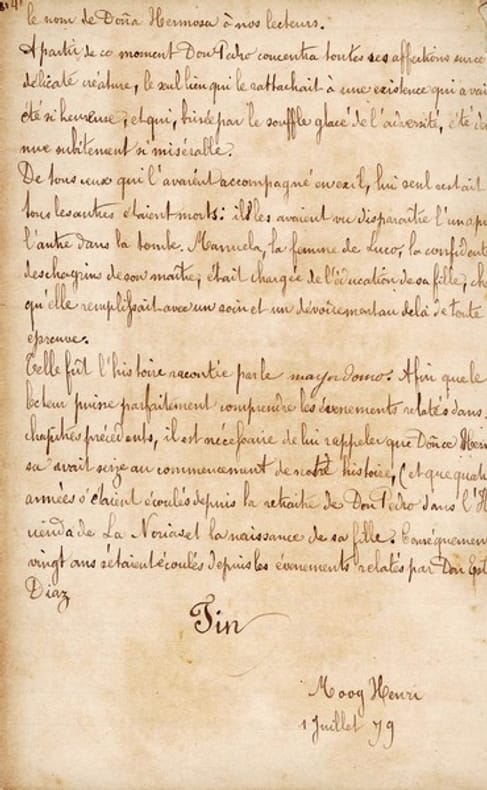 le nom de Doña Hermosa à nos lecteurs.
A partir de ce moment Don Pedro concentra toutes ses affections sur ce
délicate créature, le seul lien qui le rattachait à une existence qui avai
été si heureuse, et qui, brisée par le souffle glacé de l'adversité, était de
nue subitement si misérable.
De tous ceux qui l'avaient accompagné en exil, lui seul restait
tous les autres étaient morts: il les avaient vu disparaître l'un apr
l'autre dans la tombe. Manuela, la femme de Luco, la confidente
des chagrins de son maître, était chargée de l'éducation de sa fille, ch
qu'elle remplissait avec un soin et un dévoûement au delà de toute
épreuve.
Telle fût l'histoire racontée par le mayordomo. Afin que le
lecteur puisse parfaitement comprendre les évenements relatés dans
chapitres précédents, il est nécessaire de lui rappeler que Doñce Her
sa avait seize au commencement de notre histoire, et que quat
années s'étaient écoulés depuis la retraite de Don Pedro dans l'H
uenda de La Norias et la naissance de sa fille. Conséquemen
vingt ans s'étaient écoulés depuis les évenements relatés par Don Est
Diaz
Fin
Moog Henri
1 Juillet 79